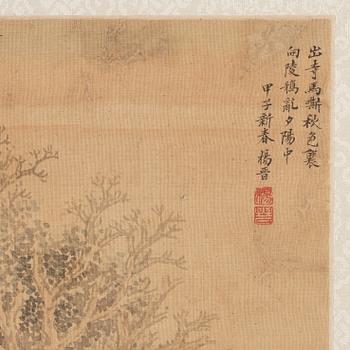 出寺馬嘶秋色裏
向陵鴉亂夕陽中
甲子新春 楊晉